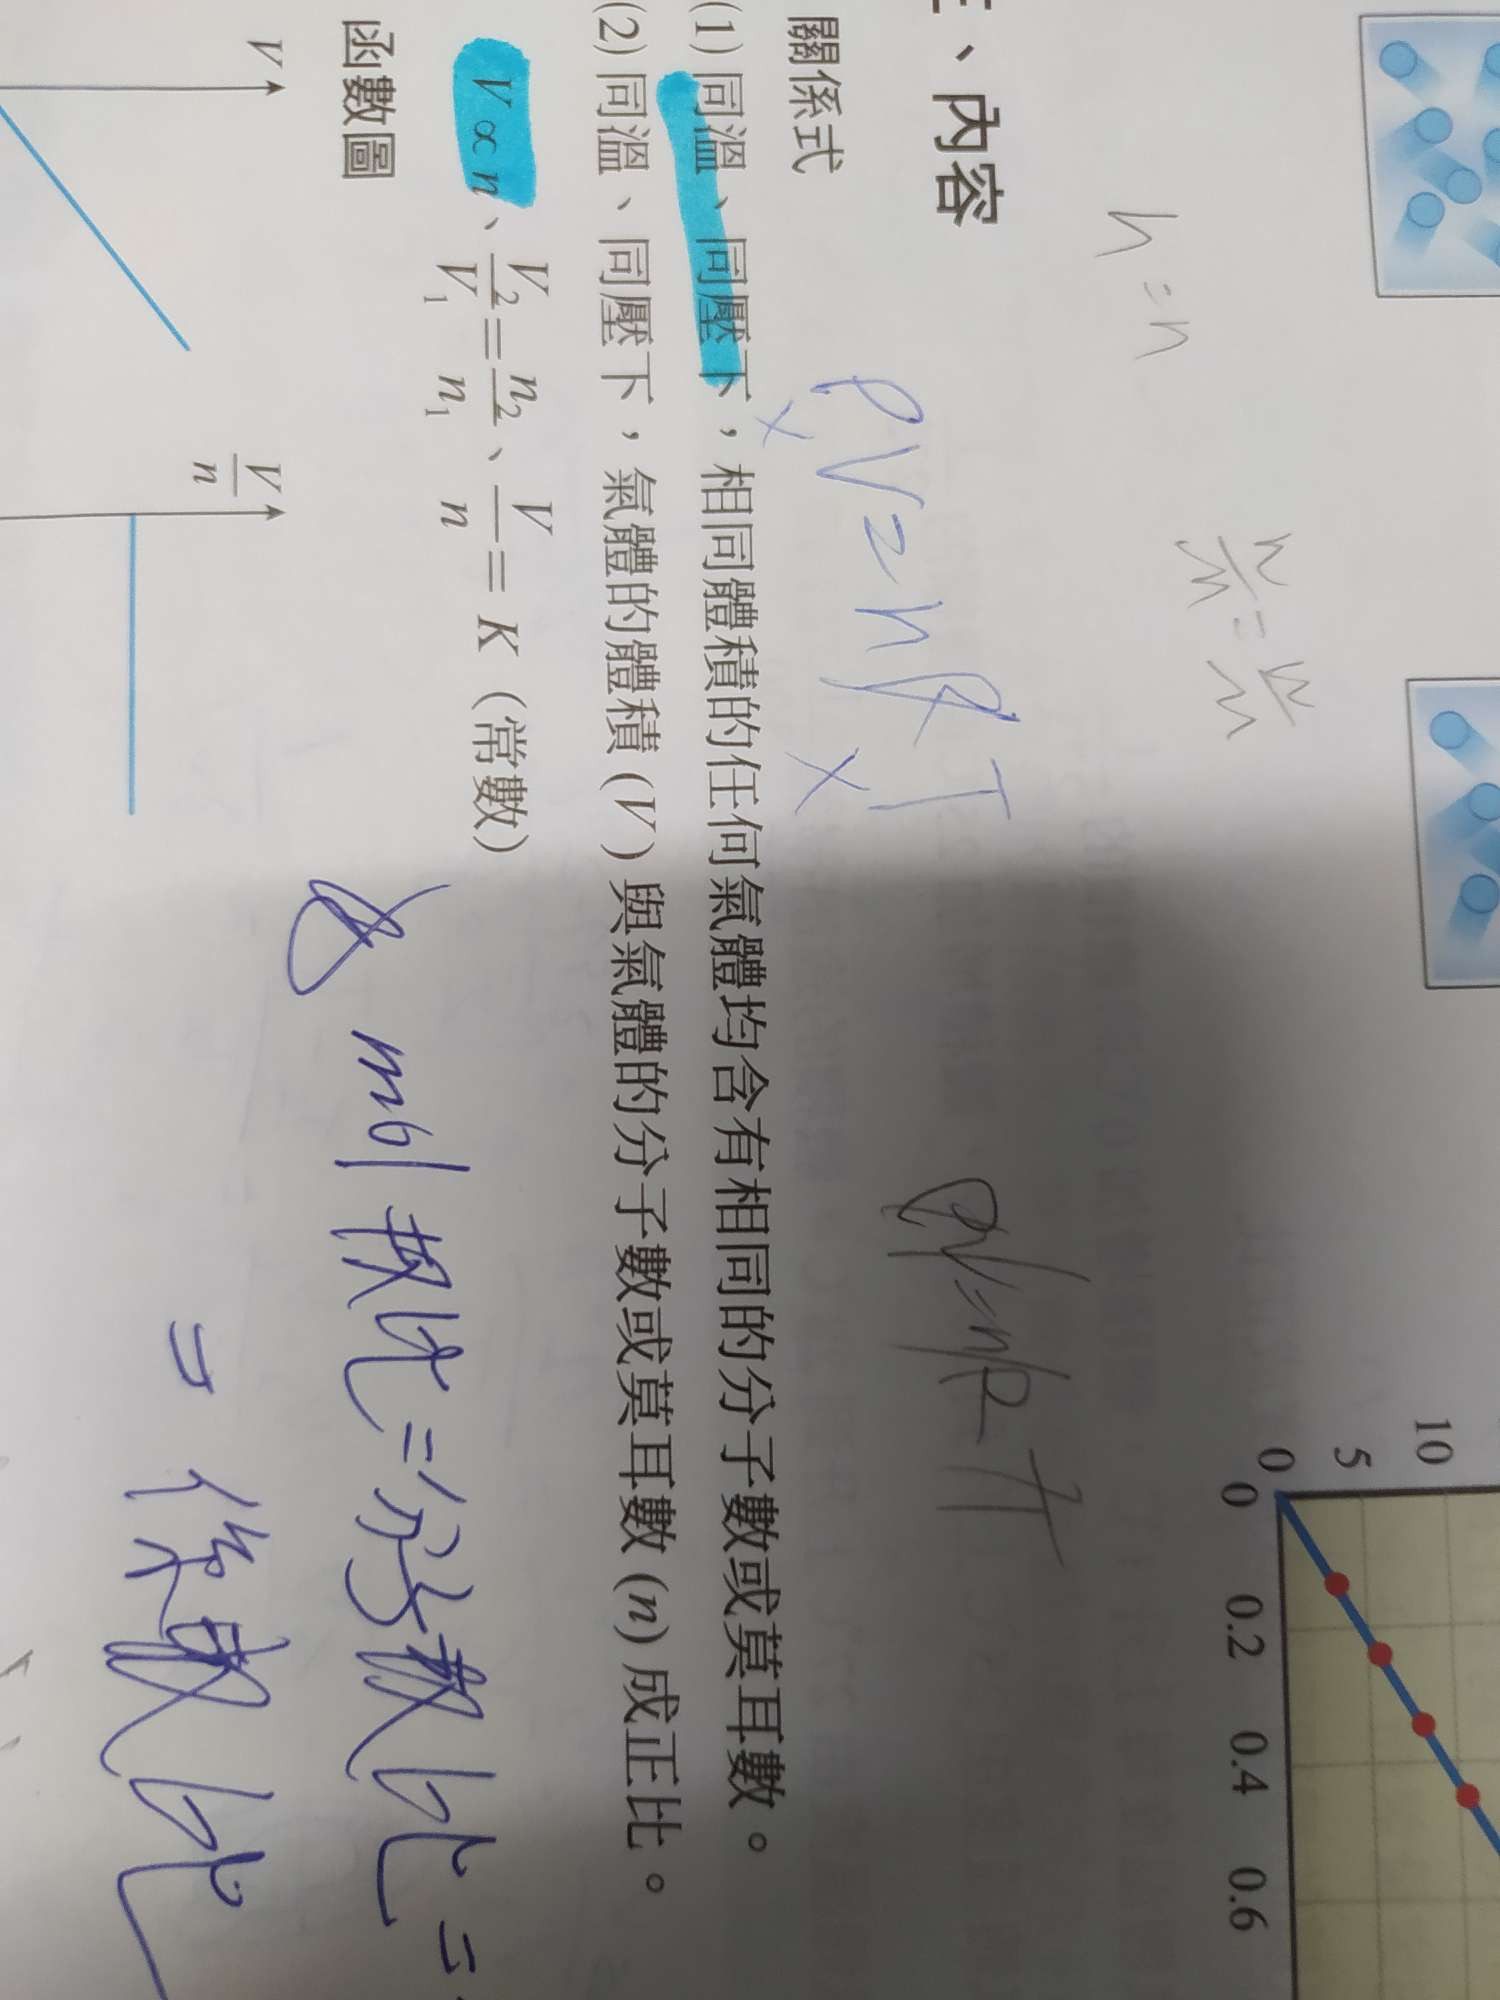 、內容
n = n
PV = nRT
PV = nRT
關係式
(1) 同溫、同壓下，相同體積的任何氣體均含有相同的分子數或莫耳數。
(2) 同溫、同壓下，氣體的體積 (V) 與氣體的分子數或莫耳數 (n) 成正比。
V ∝ n、V₂/V₁ = n₂/n₁、V/n = K（常數）
函數圖
V
V/n
mol 數比 = 分子數比 =
= 係數比
10
5
0
0 0.2 0.4 0.6